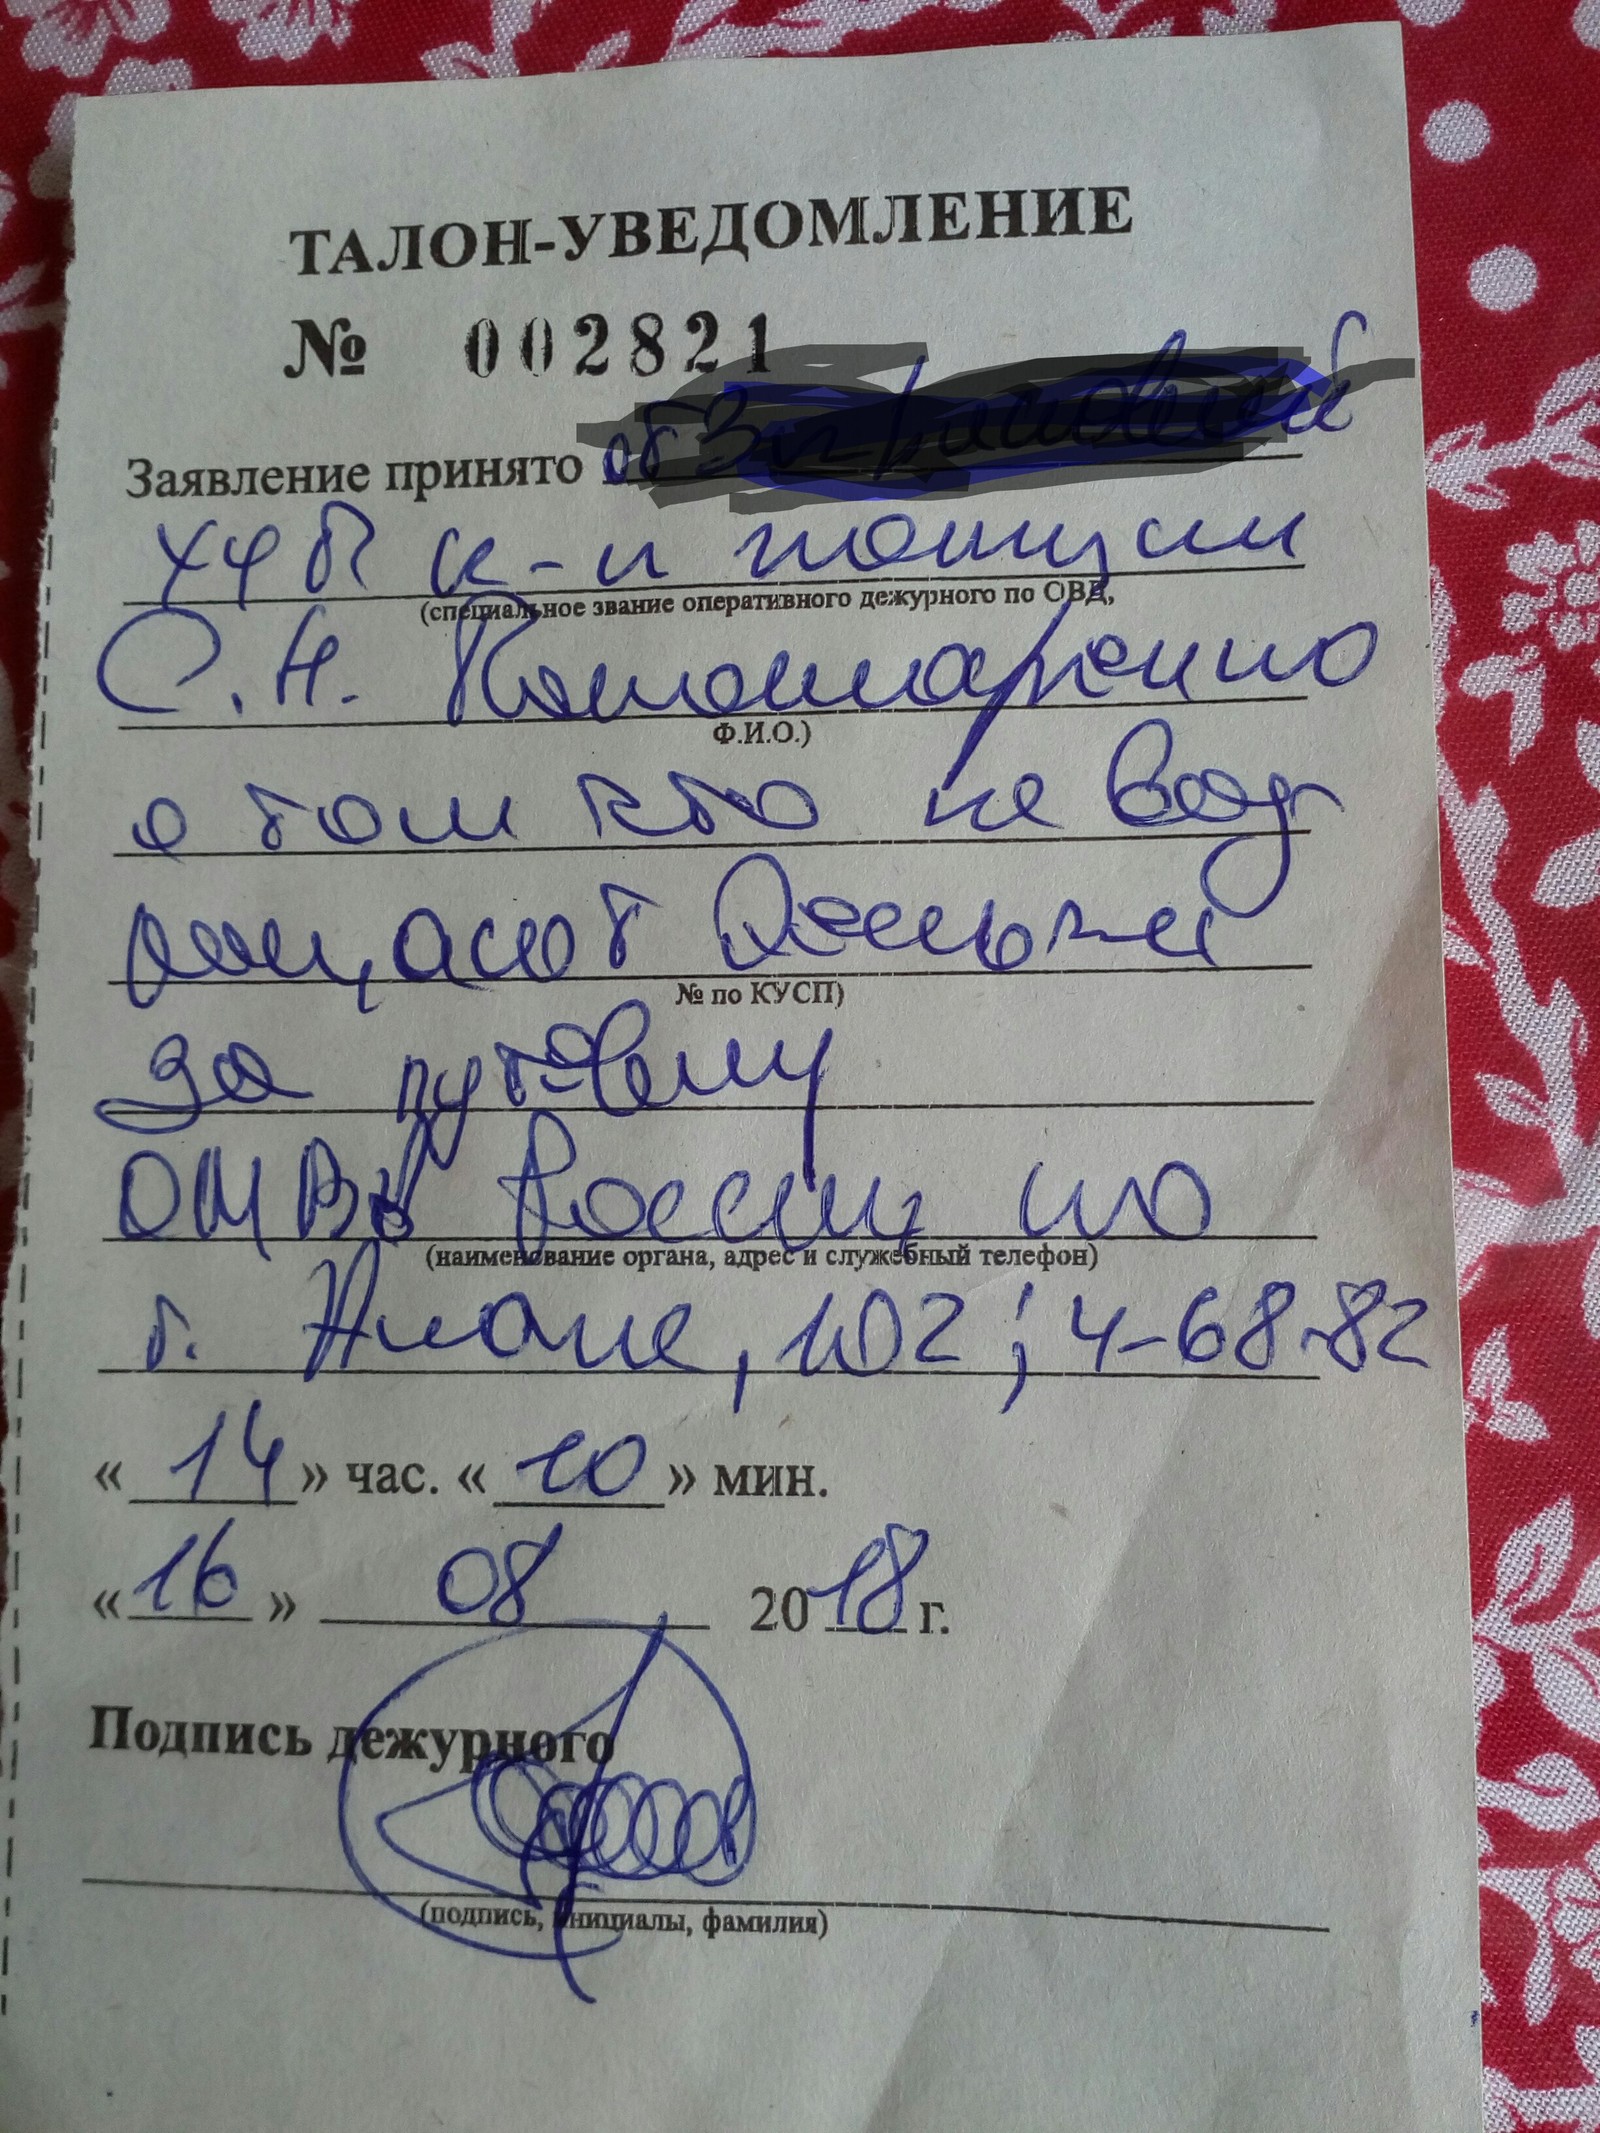 ТАЛОН-УВЕДОМЛЕНИЕ
№ 002821
Заявление принято от
к-н полиции
(специальное звание оперативного дежурного по ОВД,
С.Н. Пономаренко
Ф.И.О.)
о том что не воз
ращают деньги
№ по КУСП)
за путевку
ОМВД России по
(наименование органа, адрес и служебный телефон)
г. Анапе, 102; 4-68-82
«14» час. «10» мин.
«16» 08 2018 г.
Подпись дежурного
(подпись, инициалы, фамилия)